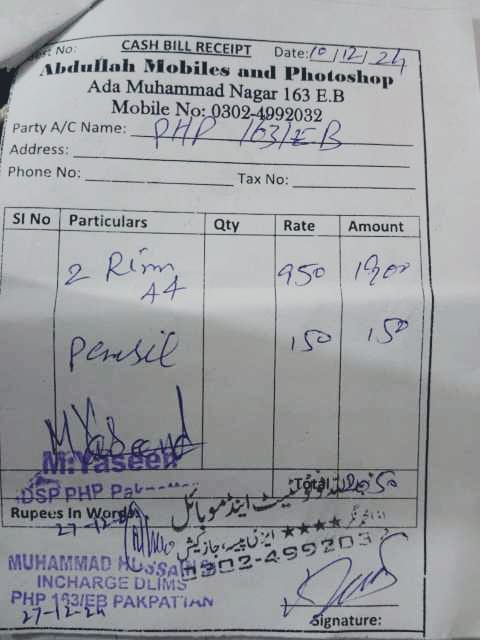 st No:
CASH BILL RECEIPT Date: 10/12/24
Abdullah Mobiles and Photoshop
Ada Muhammad Nagar 163 E.B
Mobile No: 0302-4992032
Party A/C Name: PHP 163/EB
Address:
Phone No: Tax No:
Sl No Particulars Qty Rate Amount
2 Rim A4 950 1900
Pensil 150 150
M Yaseen
M:Yaseen
Total 2050
DSP PHP Pa
Rupees In Words
فوٹو سٹیٹ اینڈ موبائل
27-12-24
0302-4992032
MUHAMMAD HUSSAIN
INCHARGE DLIMS
PHP 163/EB PAKPATTAN
27-12-24
Signature: